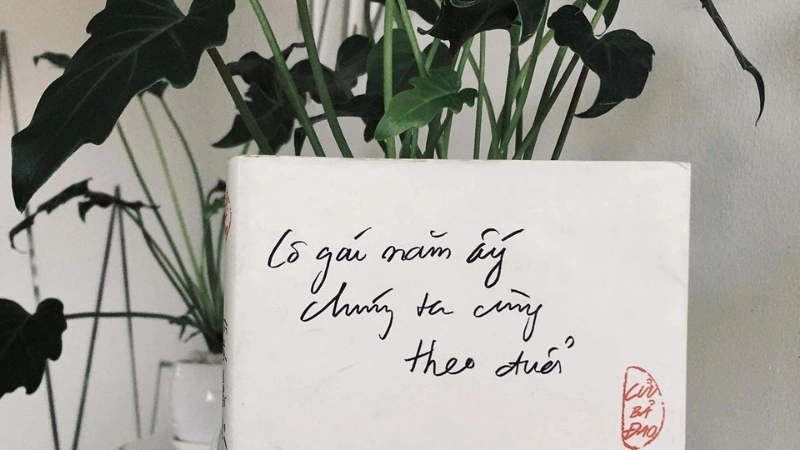 Cô gái năm ấy
chúng ta cùng
theo đuổi
CỬU
BẢ
ĐAO